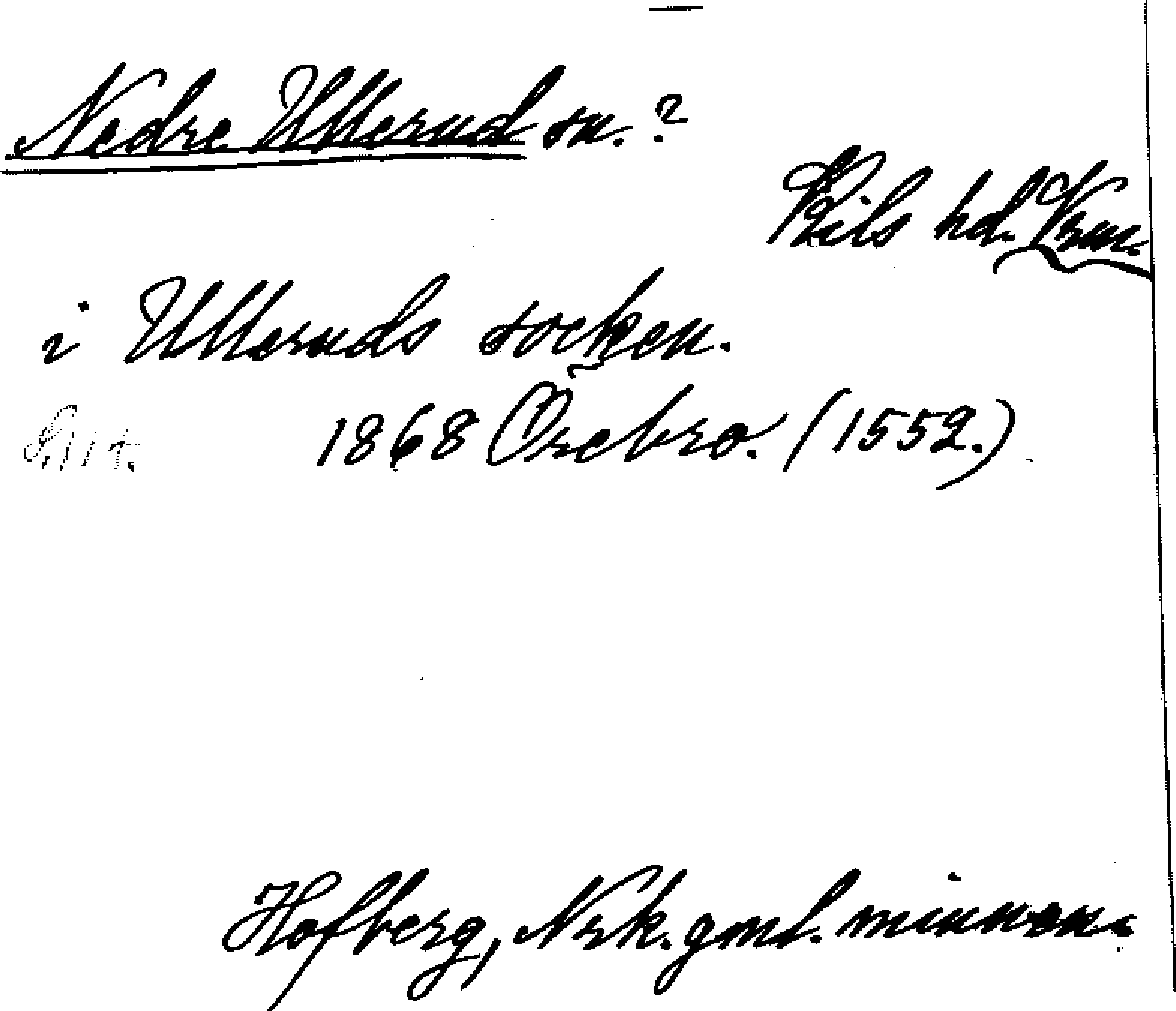 Nedre Ullerud sn.?
Kils hd. Vrm.
i Ulleruds socken.
1868 Örebro. (1552.)
Hofberg, Nrk. gml. minnen.